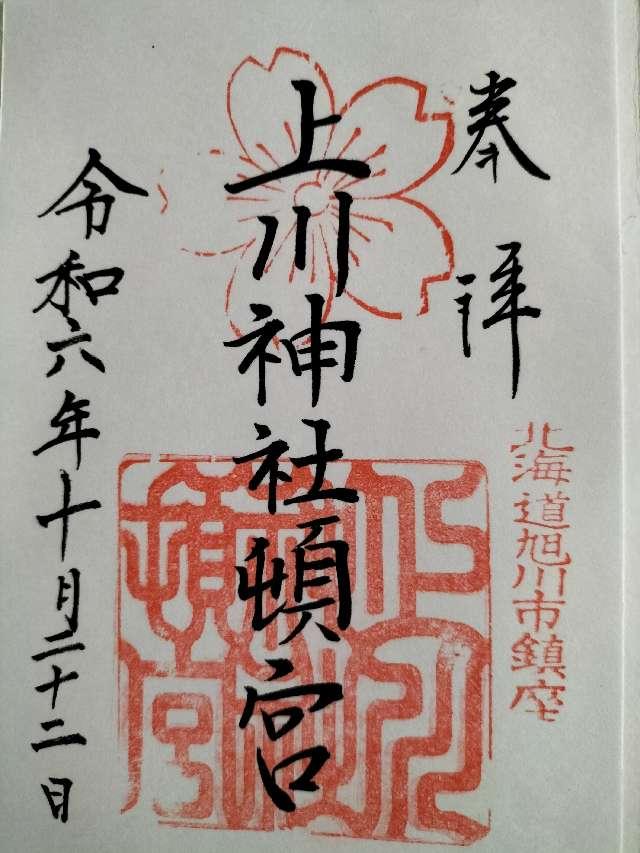 奉拝
北海道旭川市鎮座
上川神社頓宮
令和六年十月二十二日